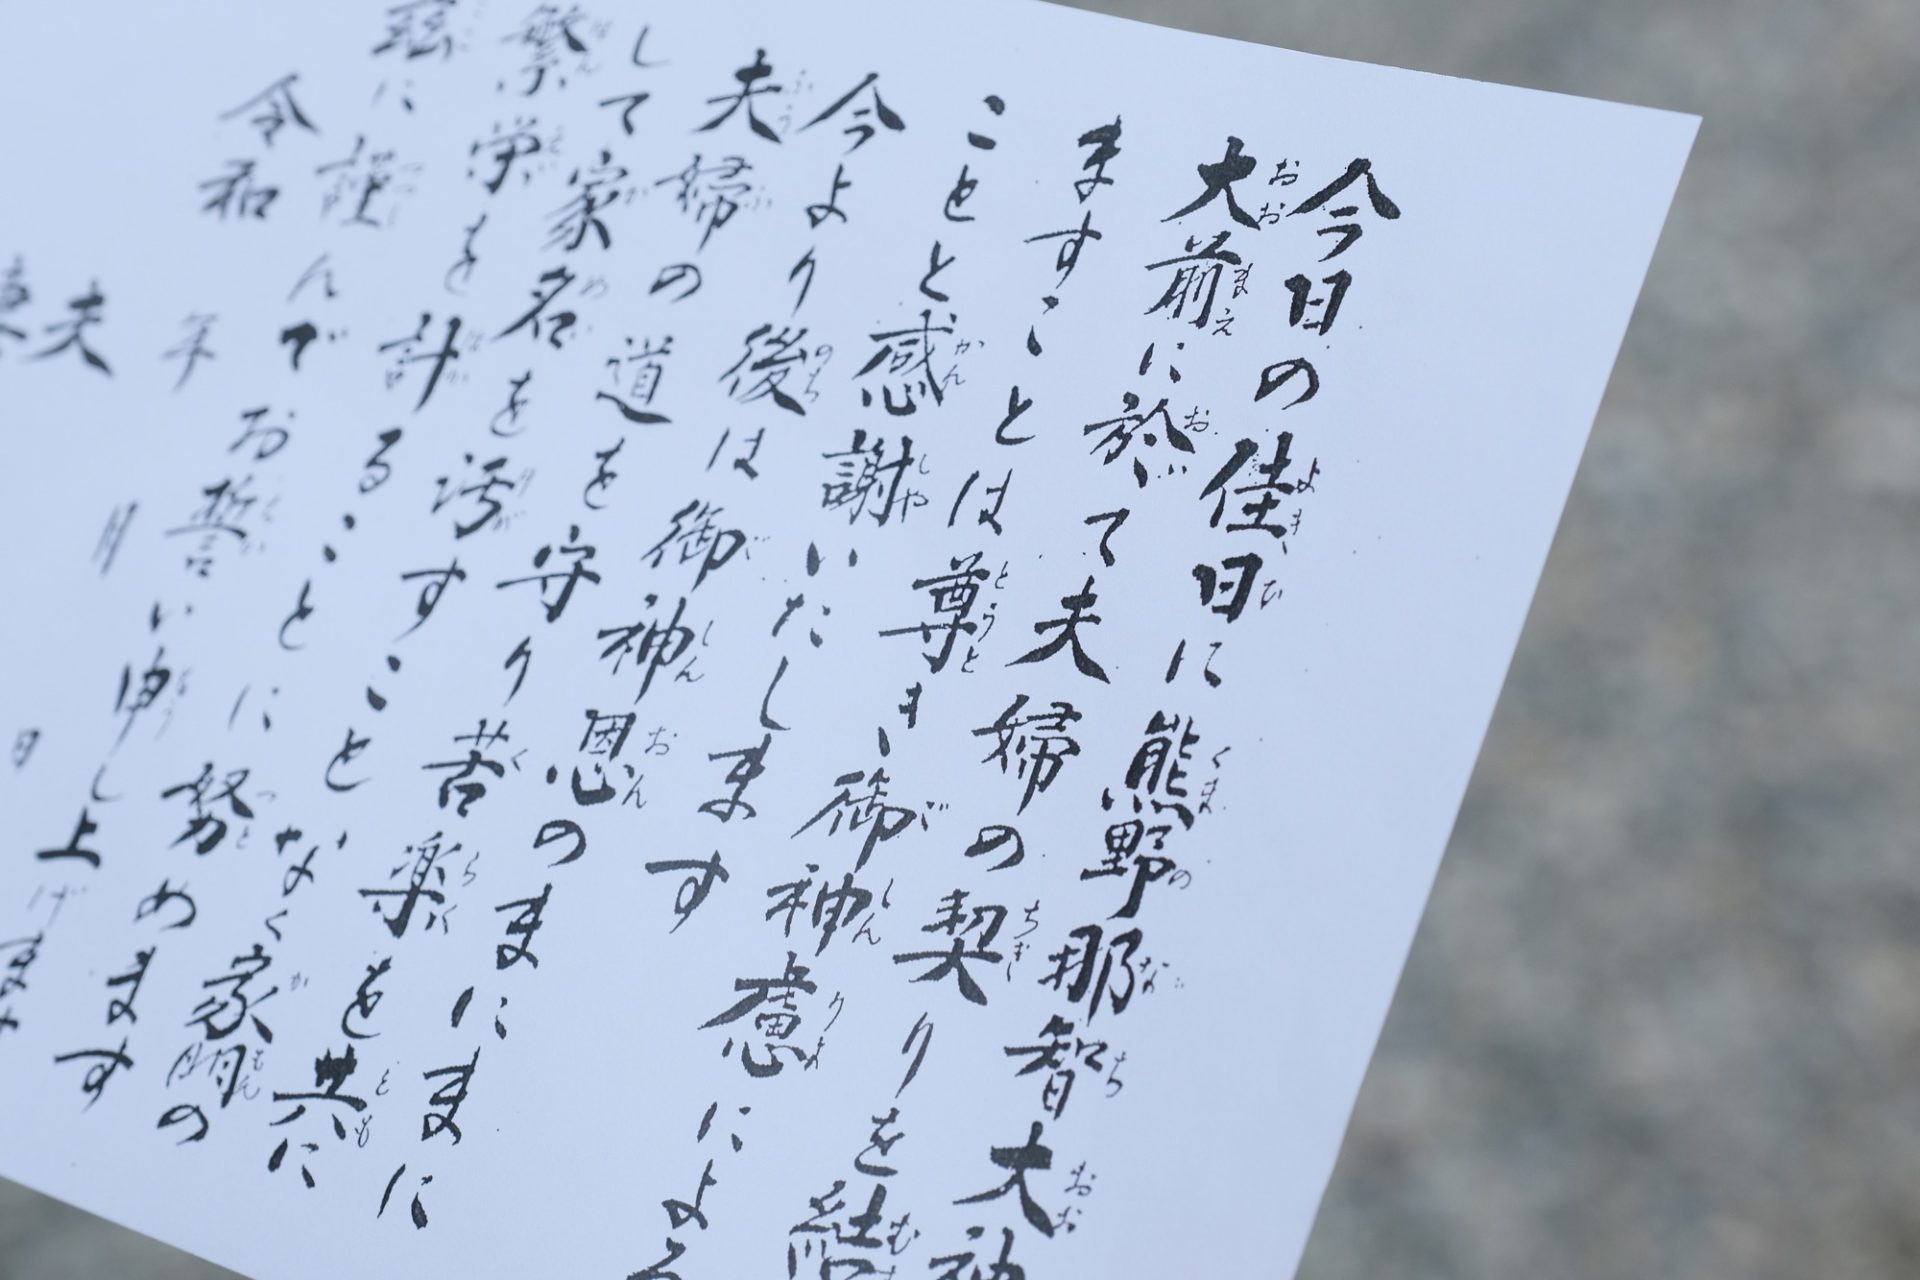 今日の佳日に熊野那智大神
大前に於いて夫婦の契りを結
ますことは尊き御神慮による
ことと感謝いたします
今より後は御神恩のまにまに
夫婦の道を守り苦楽を共に
して家名を汚すことなく家門の
繁栄を計ることに努めます
茲に謹んでお誓い申し上げます
令和 年 月 日
夫
妻